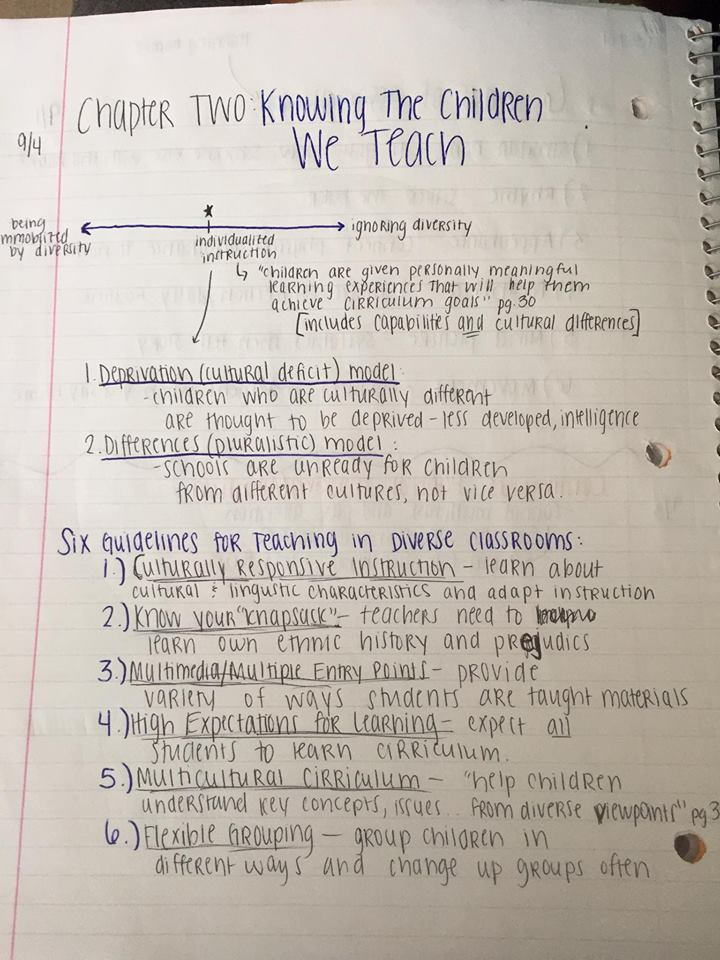 Chapter Two: Knowing The Children
We Teach
9/4
being
immobilized
by diversity
individualized
instruction
ignoring diversity
"children are given personally meaningful
learning experiences that will help them
achieve cirriculum goals" pg. 30
[includes capabilites and cultural differences]
1. Deprivation (cultural deficit) model:
-children who are culturally different
are thought to be deprived - less developed, intelligence
2. Differences (pluralistic) model:
-schools are unready for children
from different cultures, not vice versa.
Six Guidelines for Teaching in Diverse Classrooms:
1.) Culturally Responsive Instruction - learn about
cultural & lingustic characteristics and adapt instruction
2.) Know your "knapsack" - teachers need to
learn own ethnic history and prejudics
3.) Multimedia/Multiple Entry Points - provide
variety of ways students are taught materials
4.) High Expectations for Learning - expect all
students to learn cirriculum.
5.) Multicultural Cirriculum - "help children
understand key concepts, issues... from diverse viewpoints" pg 3
6.) Flexible Grouping - group children in
different ways and change up groups often